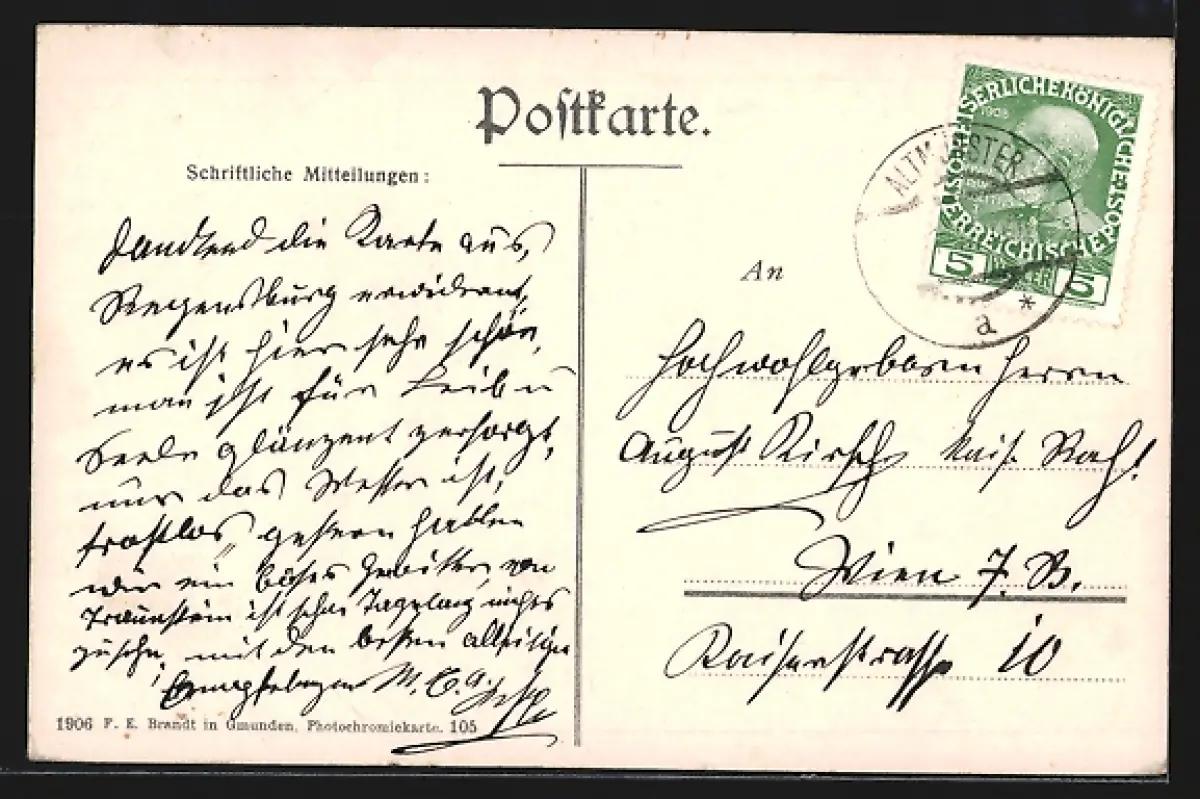 Postkarte.
Schriftliche Mitteilungen:
dankend die Karte aus,
Regensburg erwidernd,
es ist hier sehr schön,
man ist für Leib u
Seele glänzent versorgt,
nur das Wetter ist,
trostlos, gestern hatten
wir ein böses Gewitter, von
Traunstein ist schon Tagelang nichts
zusehn, mit den besten allseitigen
M. C. A.
1906 F. E. Brandt in Gmunden, Photochromiekarte. 105
KAISERLICHEKÖNIGLICHE ÖSTERREICHISCHEPOST
1908
5 HELLER 5
ALTMÜNSTER
a *
An
Hochwohlgeboren Herrn
August Kirsch kais. Rath!
Wien 7. B.
Kaiserstrasse 10